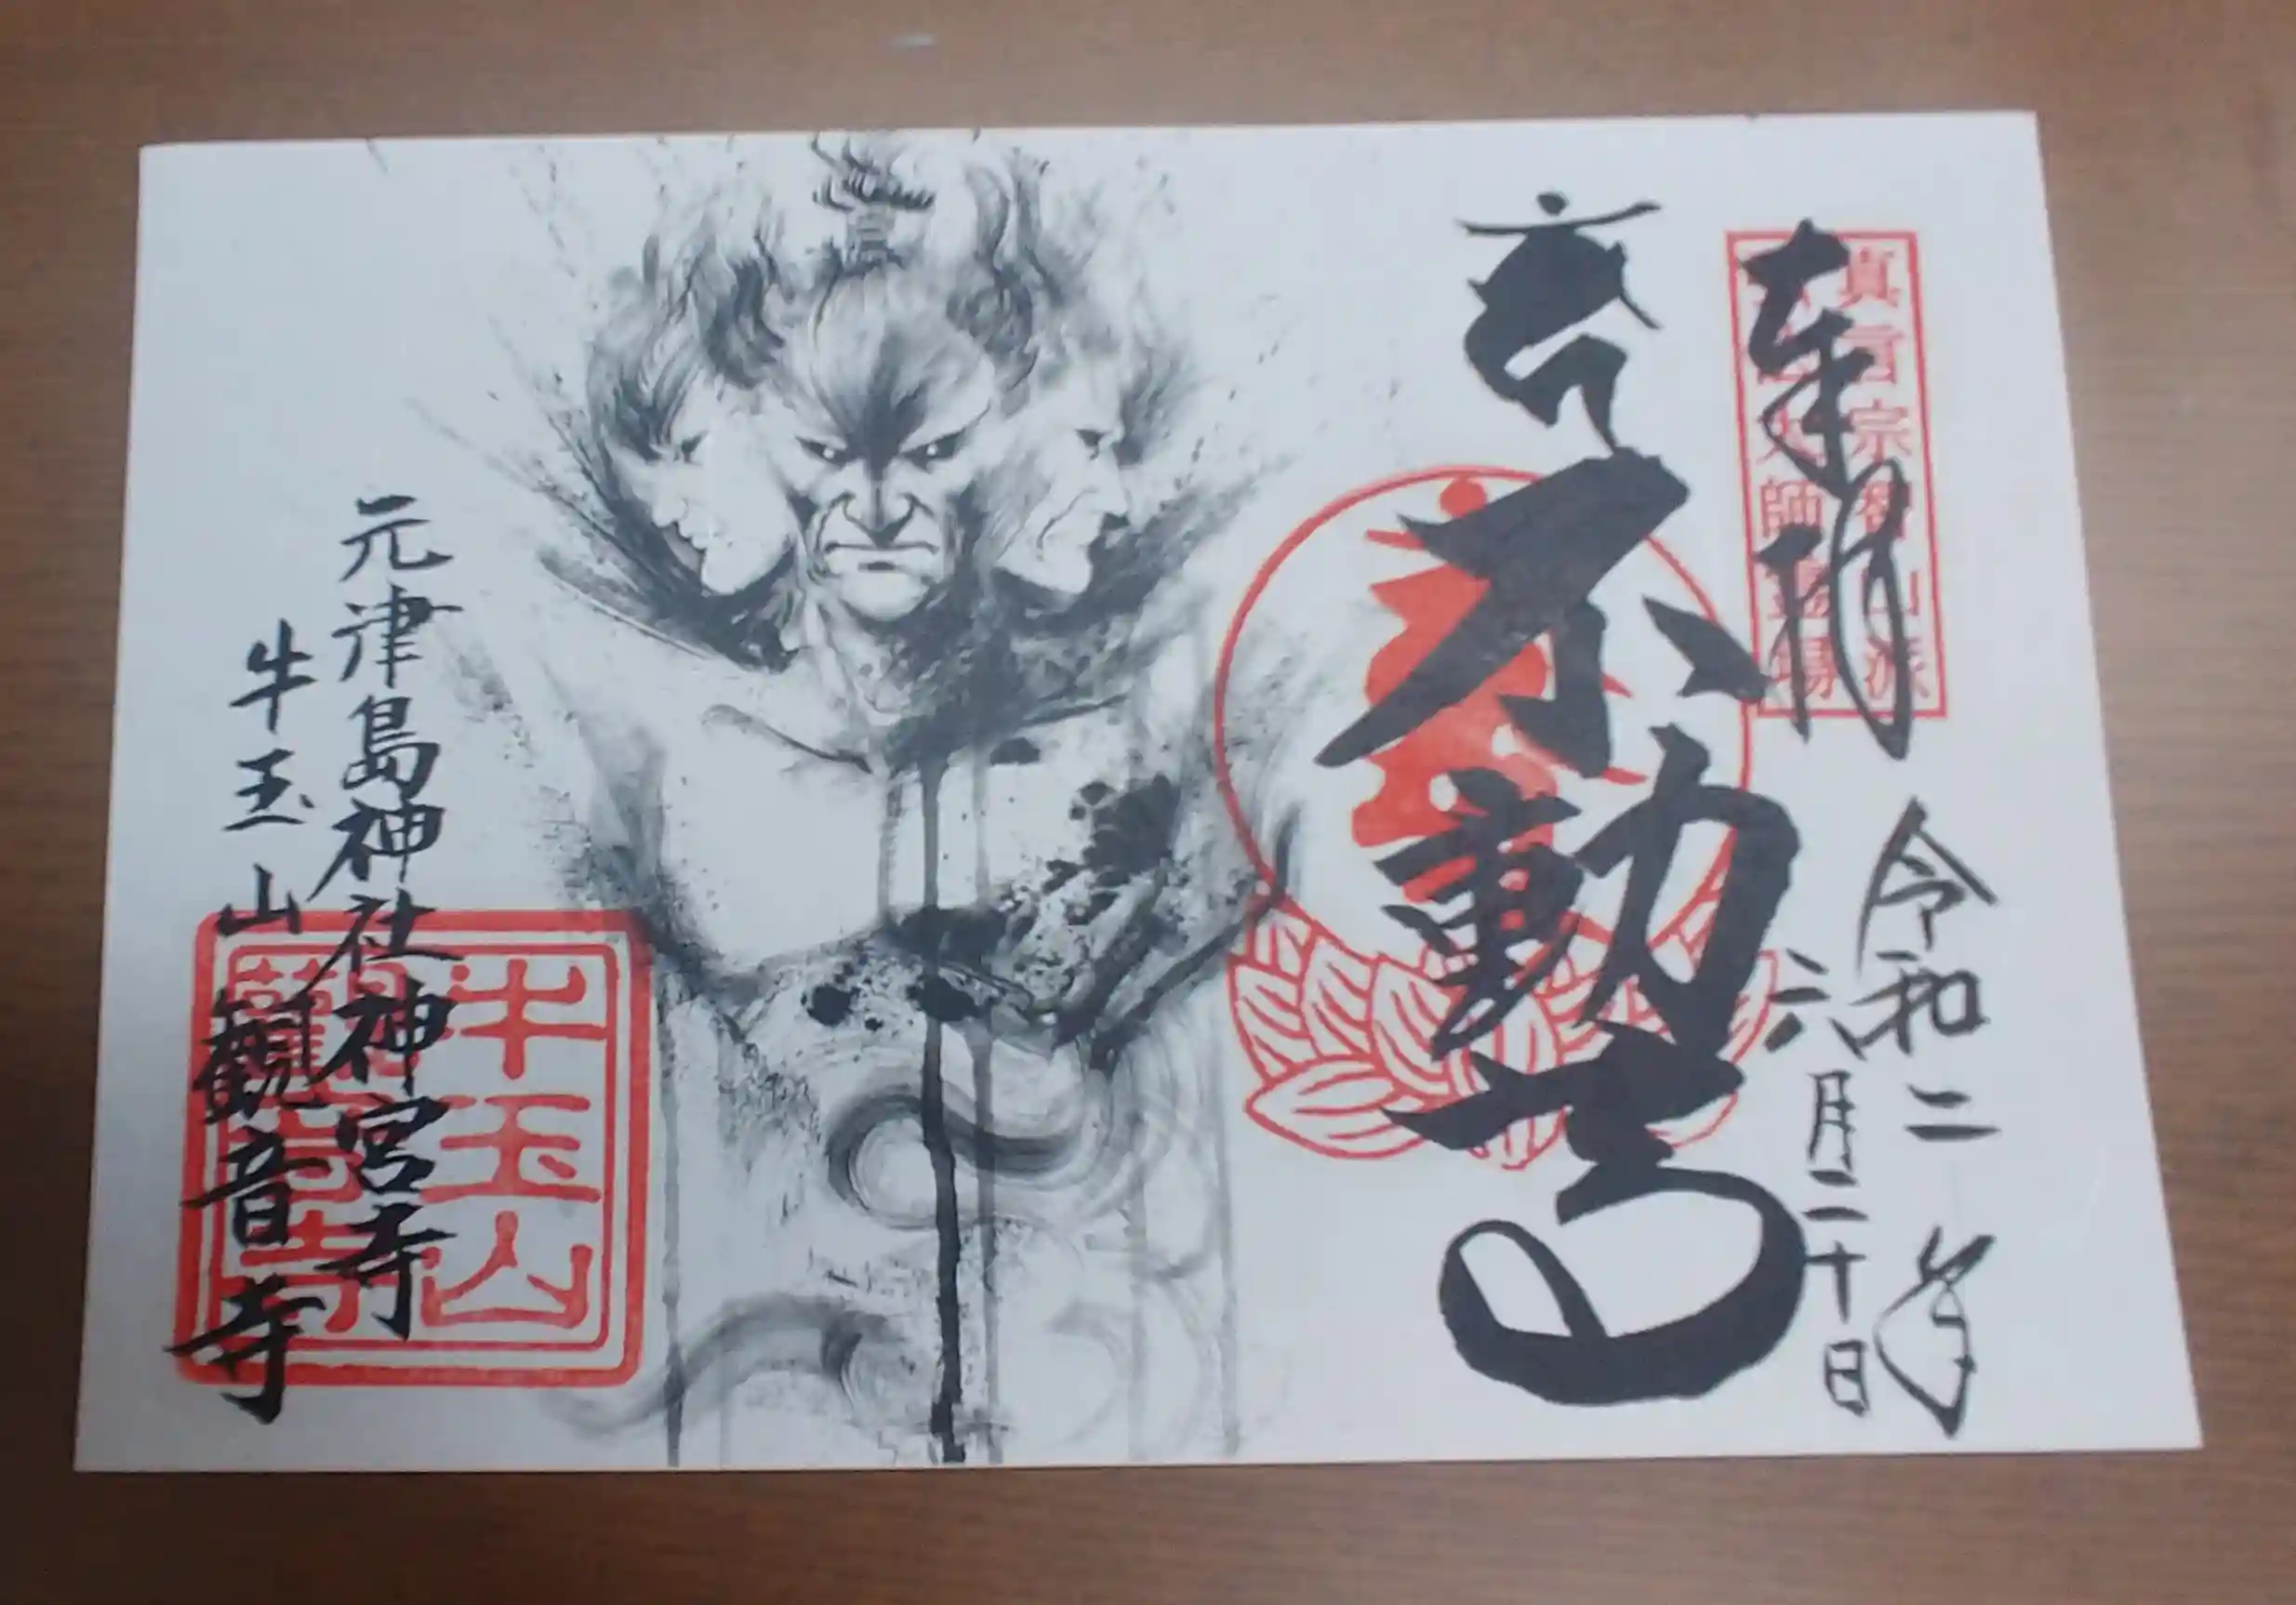 奉拝
真言宗智山派
令和二年
六月二十日
不動
元津島神社神宮寺
牛玉山観音寺
牛玉山
観音寺